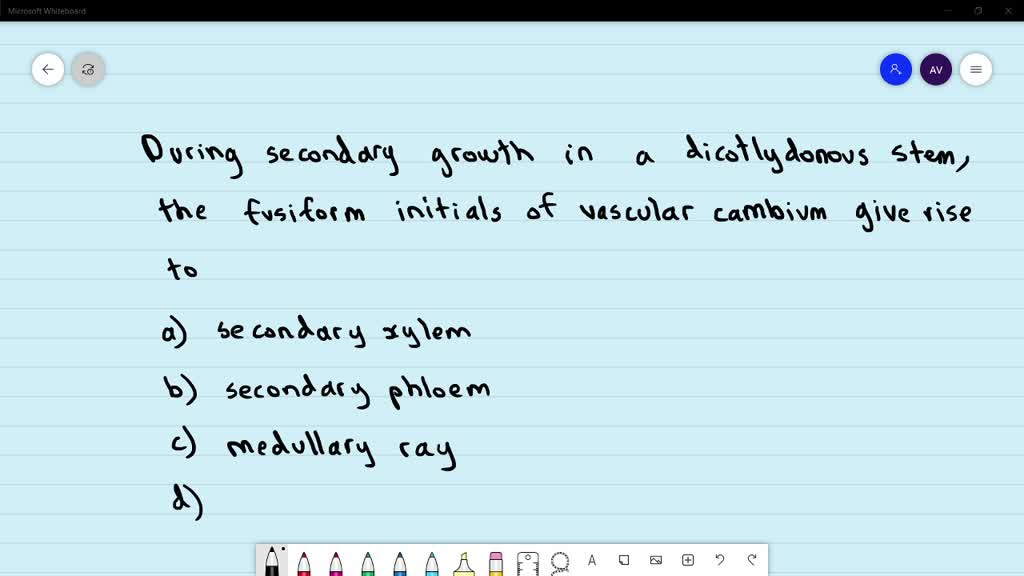 Microsoft Whiteboard
AV
During secondary growth in a dicotlydonous stem,
the fusiform initials of vascular cambium give rise
to
a) secondary xylem
b) secondary phloem
c) medullary ray
d)
A